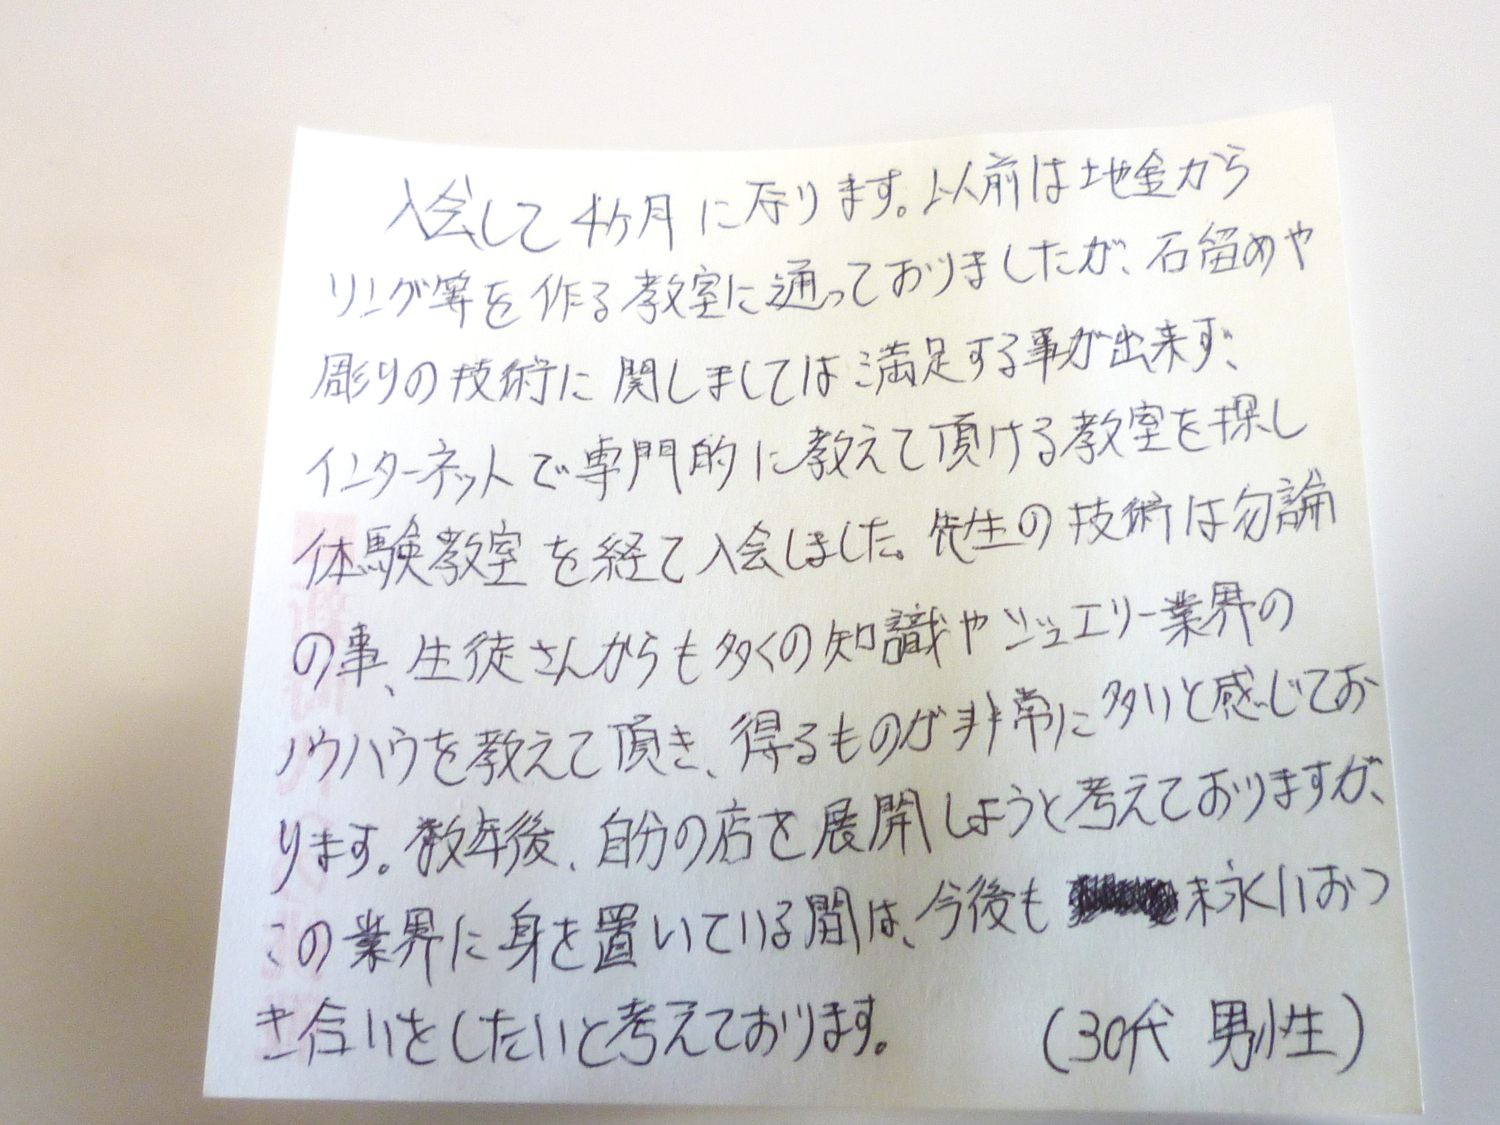 入会して4ヶ月になります。以前は地金から
リング等を作る教室に通っておりましたが、石留めや
彫りの技術に関しましては満足する事が出来ず、
インターネットで専門的に教えて頂ける教室を探し
体験教室を経て入会しました。先生の技術は勿論
の事、生徒さんからも多くの知識やジュエリー業界の
ノウハウを教えて頂き、得るものが非常に多いと感じてお
ります。数年後、自分の店を展開しようと考えておりますが、
この業界に身を置いている間は、今後も 末永いおつ
き合いをしたいと考えております。 (30代 男性)